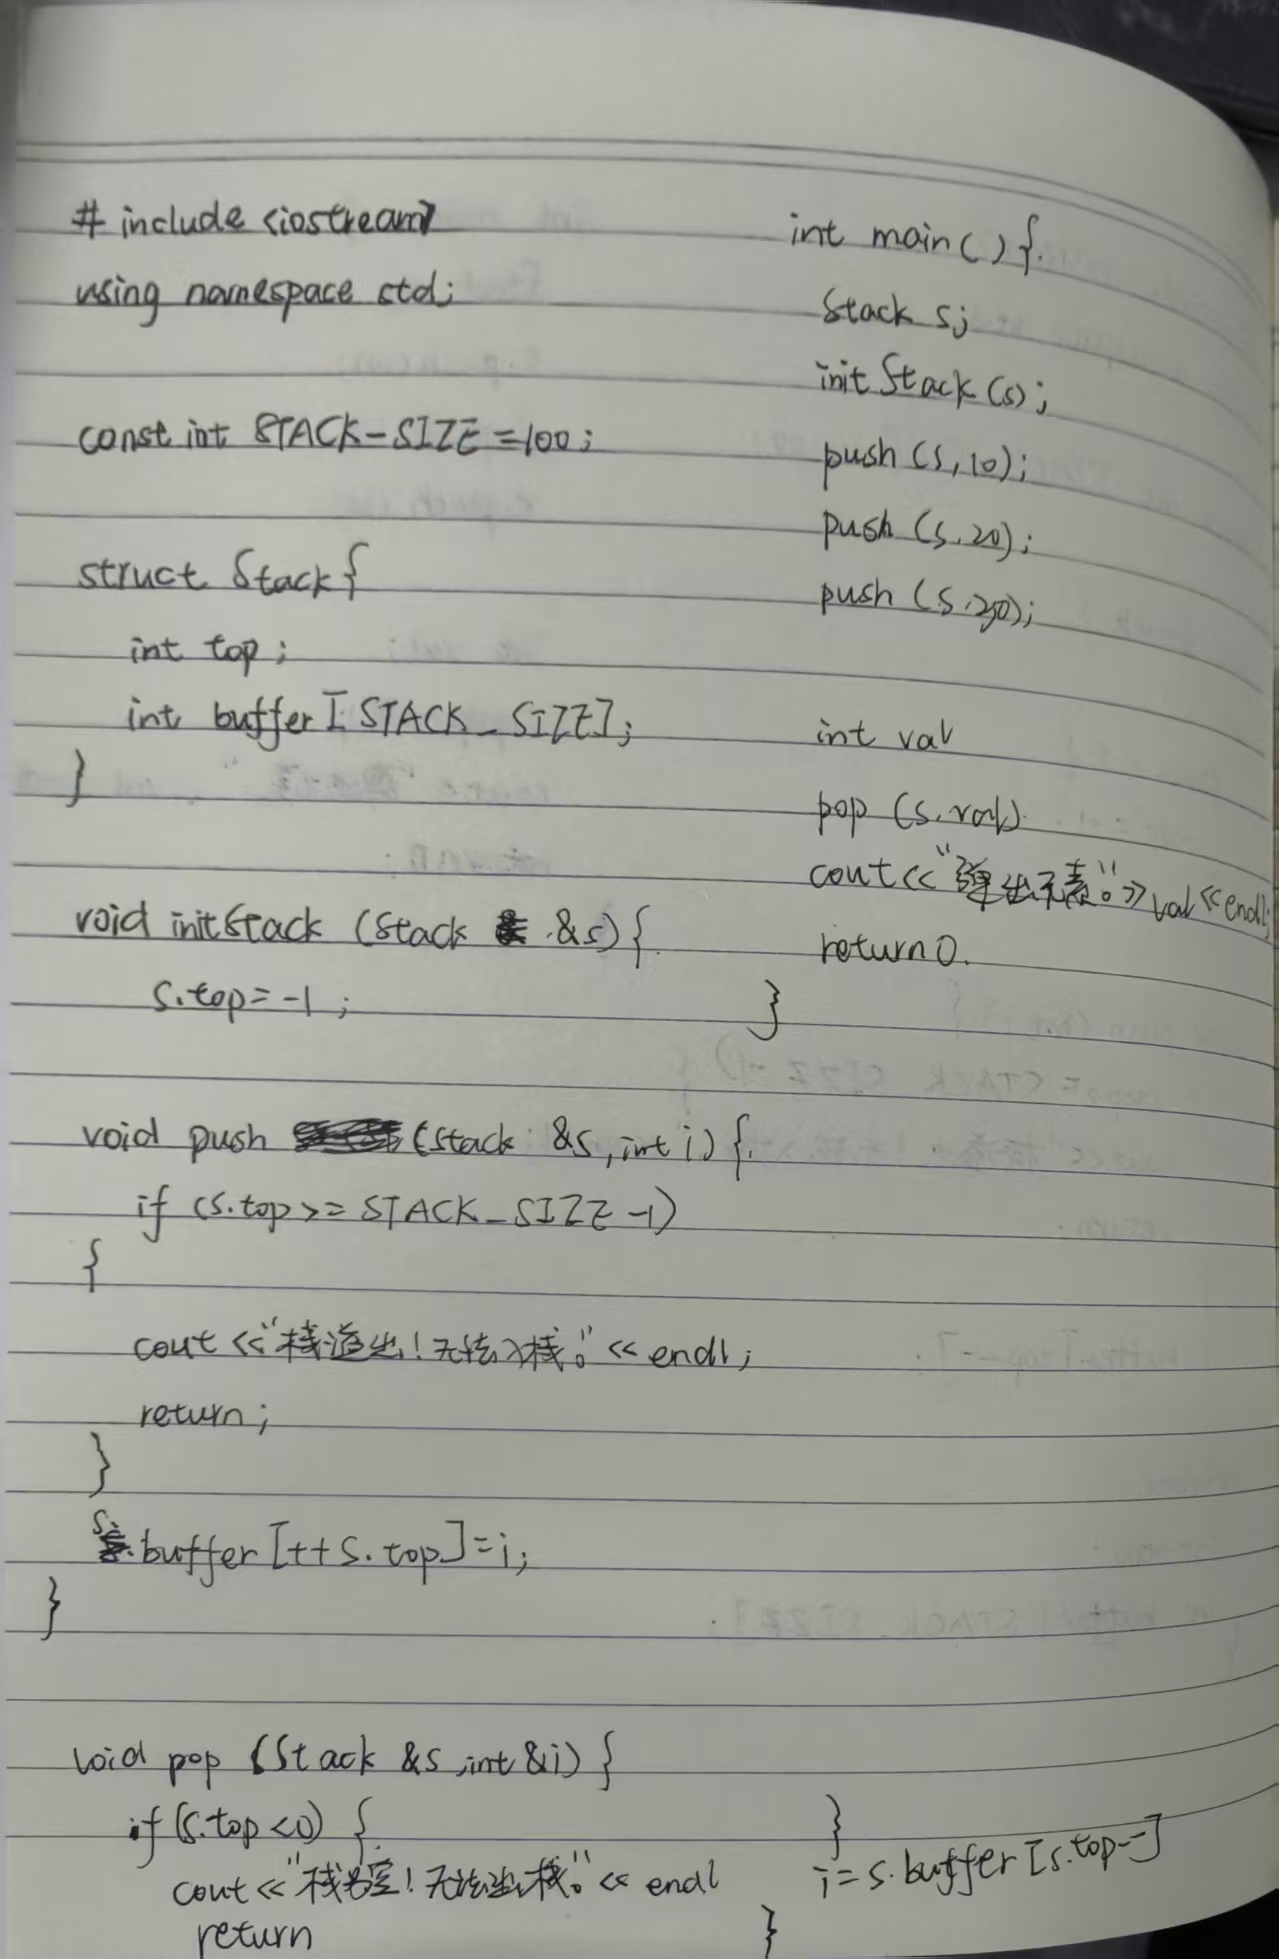 # include <iostream>
using namespace std;
const int STACK-SIZE =100;
struct Stack{
int top;
int buffer [STACK_SIZE];
}
void initStack (Stack &s){
s.top=-1;
void push (stack &s,int i){
if (s.top>= STACK_SIZE-1)
{
cout <<"栈溢出!无法入栈。"<< endl;
return;
}
s.buffer [++s.top]=i;
}
void pop (Stack &s,int &i){
if(s.top<0) {
cout <<"栈为空!无法出栈。"<< endl
return
}
i=s.buffer [s.top--]
}
int main(){
Stack s;
initStack(s);
push (s,10);
push (s,20);
push (s,
int val
pop (s,val)
cout<<"弹出元素。">>val<<endl;
return 0.
}